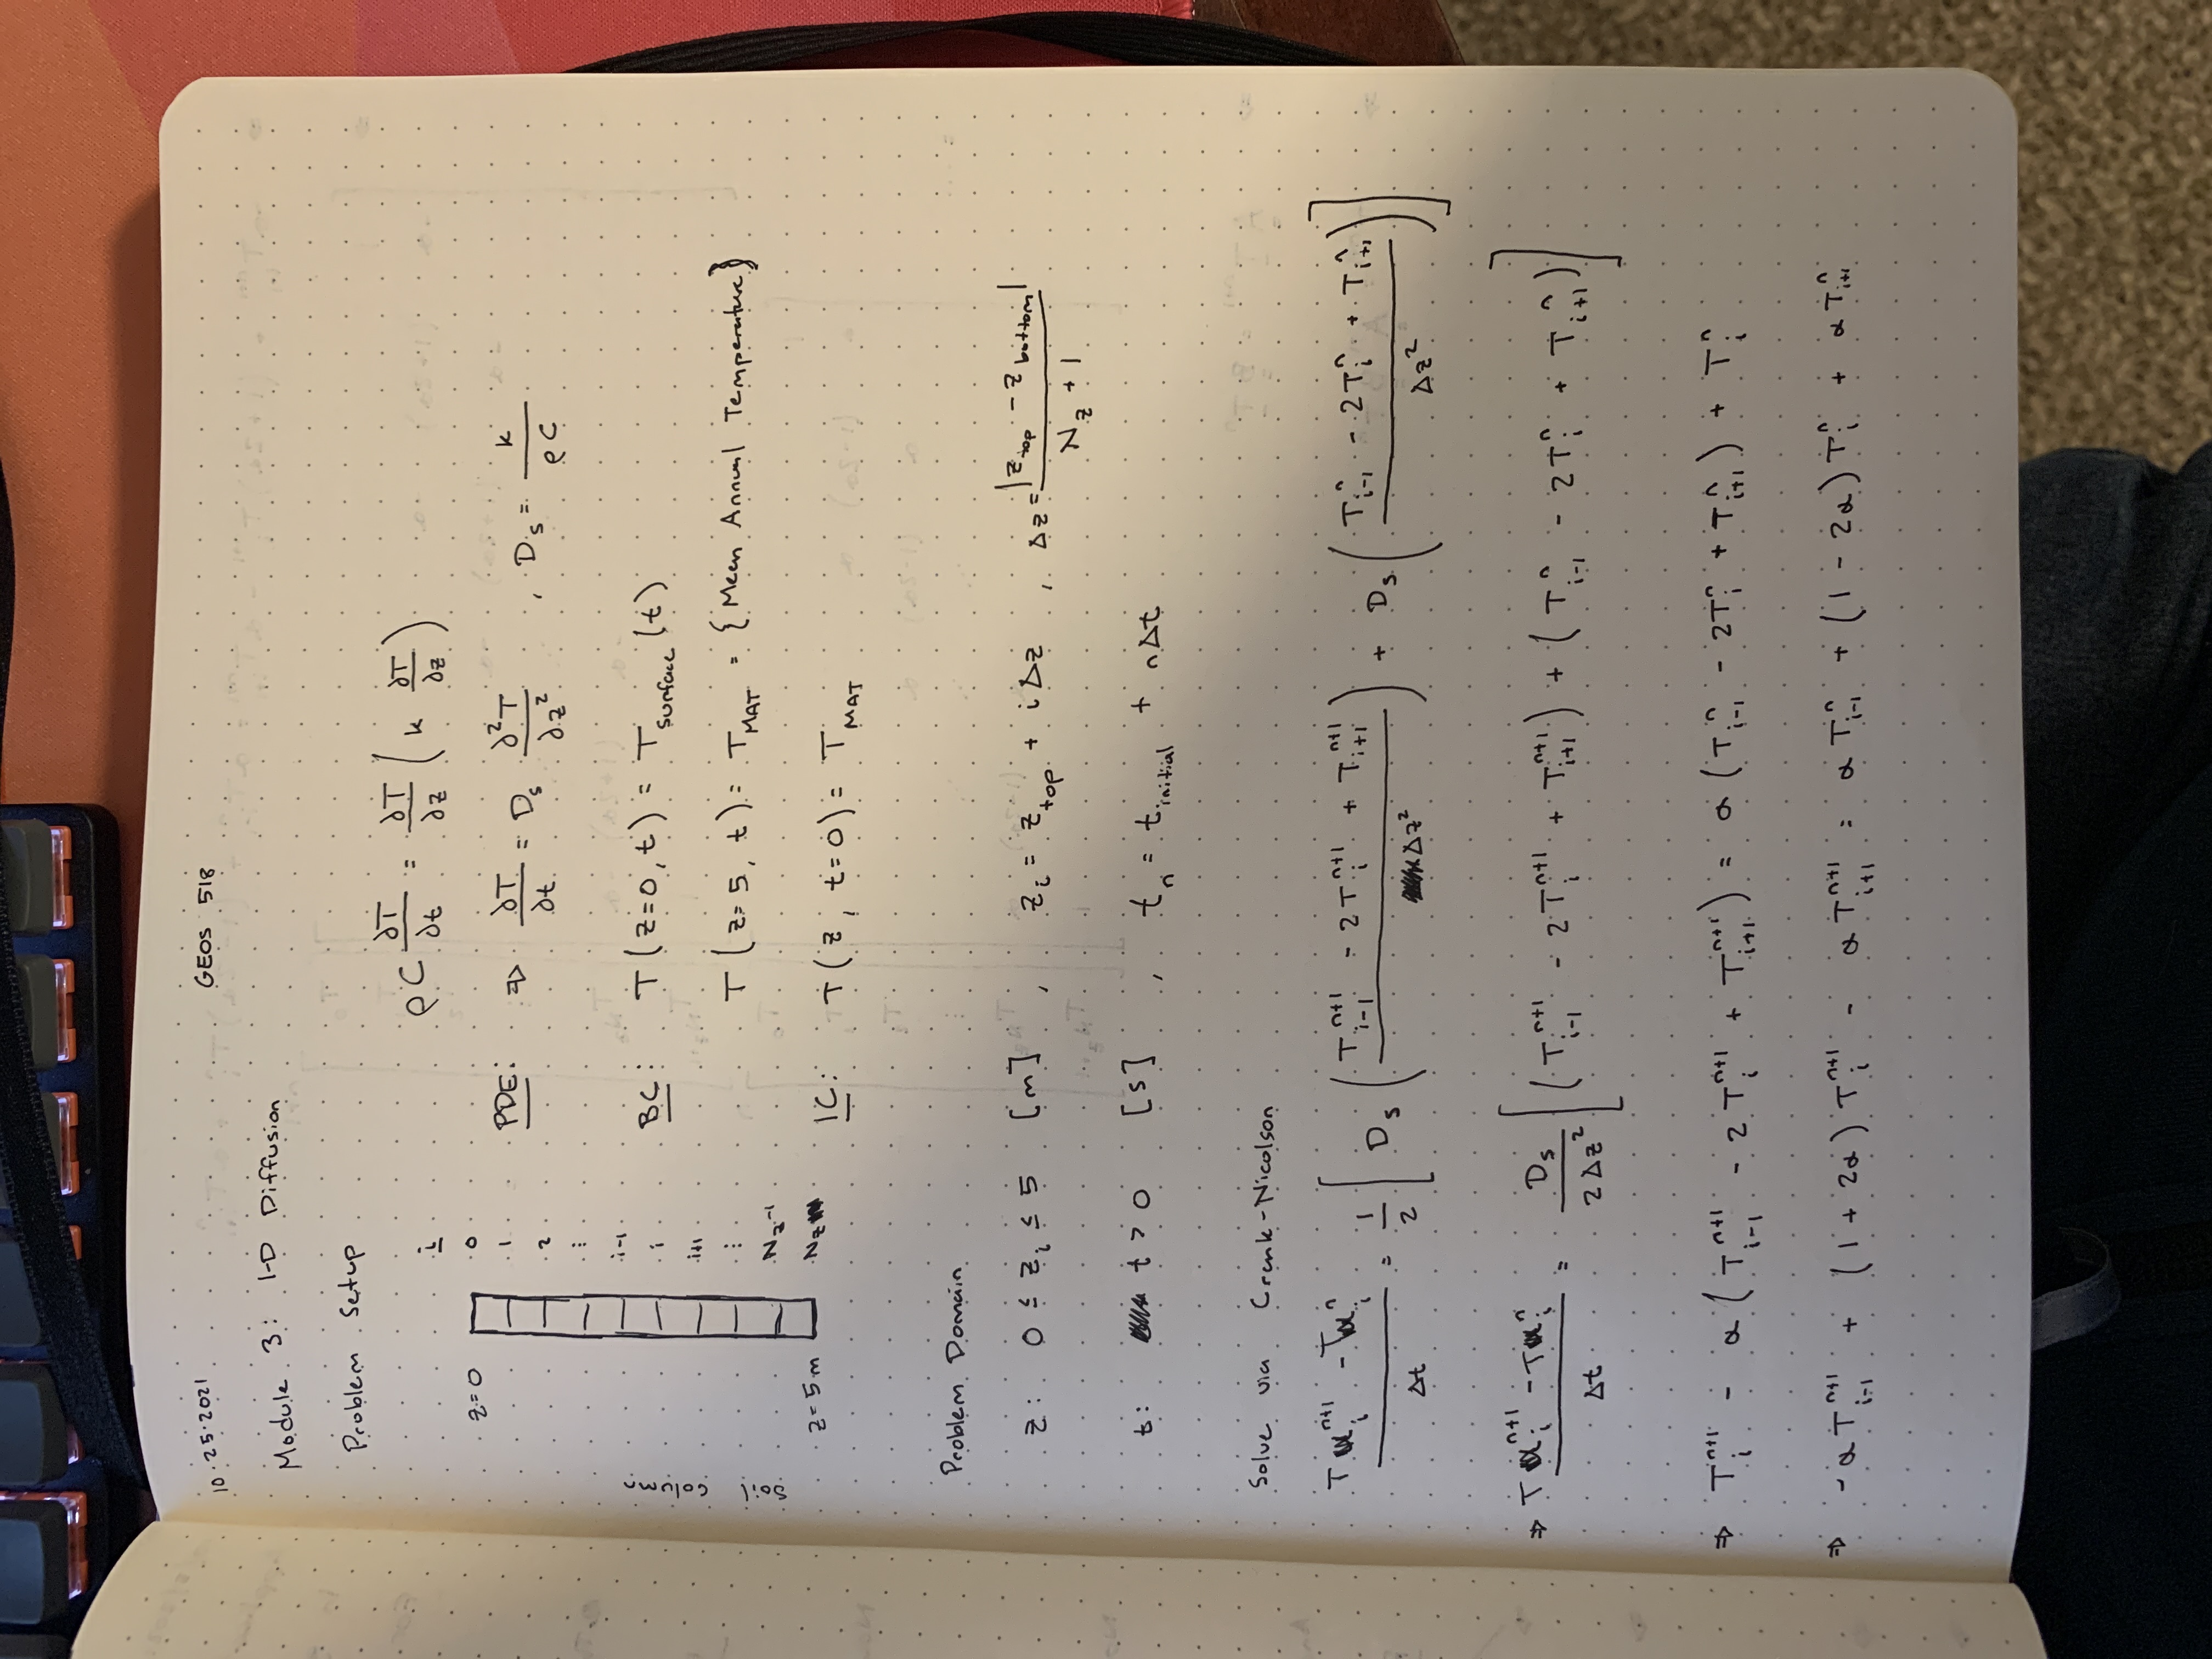 10.25.2021
GEOS 518
Module 3: 1-D Diffusion
Problem Setup
ρC ∂T/∂t = ∂T/∂z ( k ∂T/∂z )
i
z=0
0
1
2
⋮
i-1
i
i+1
⋮
N_z-1
N_z
z=5m
Soil Column
PDE: ⇒ ∂T/∂t = D_s ∂²T/∂z² , D_s = k/ρC
BC: T(z=0,t) = T_surface(t)
T(z=5,t) = T_MAT = {Mean Annual Temperature}
IC: T(z, t=0) = T_MAT
Problem Domain
z: 0 ≤ z_i ≤ 5 [m] , z_i = z_top + iΔz , Δz = |z_top - z_bottom| / N_z + 1
t: t > 0 [s] , t_n = t_initial + nΔt
Solve via Crank-Nicolson
T_i^{n+1} - T_i^n / Δt = 1/2 [ D_s ( T_{i-1}^{n+1} - 2T_i^{n+1} + T_{i+1}^{n+1} / Δz² ) + D_s ( T_{i-1}^n - 2T_i^n + T_{i+1}^n / Δz² ) ]
⇒ T_i^{n+1} - T_i^n / Δt = D_s / 2Δz² [ ( T_{i-1}^{n+1} - 2T_i^{n+1} + T_{i+1}^{n+1} ) + ( T_{i-1}^n - 2T_i^n + T_{i+1}^n ) ]
⇒ T_i^{n+1} - α ( T_{i-1}^{n+1} - 2T_i^{n+1} + T_{i+1}^{n+1} ) = α ( T_{i-1}^n - 2T_i^n + T_{i+1}^n ) + T_i^n
⇒ -αT_{i-1}^{n+1} + (1 + 2α) T_i^{n+1} - αT_{i+1}^{n+1} = αT_{i-1}^n + (1 - 2α) T_i^n + αT_{i+1}^n